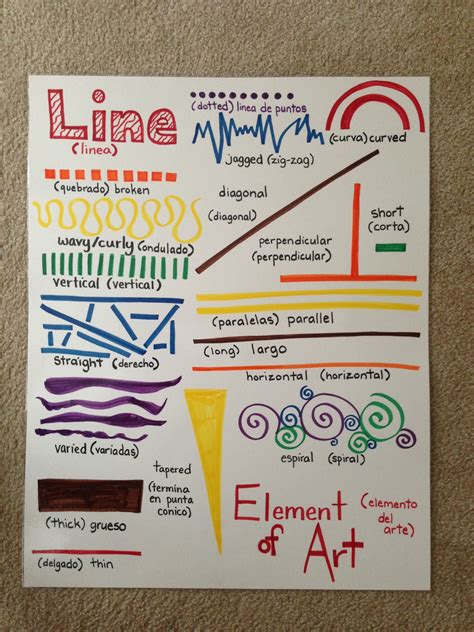 Line
(linea)
(dotted) linea de puntos
jagged (zig-zag)
(curva) curved
(quebrado) broken
diagonal
(diagonal)
wavy/curly (ondulado)
perpendicular
(perpendicular)
short
(corta)
vertical (vertical)
(paralelas) parallel
(long) largo
straight (derecho)
horizontal (horizontal)
varied (variadas)
espiral (spiral)
tapered
(termina
en punta
conico)
(thick) grueso
(delgado) thin
Element
of Art
(elemento
del
arte)